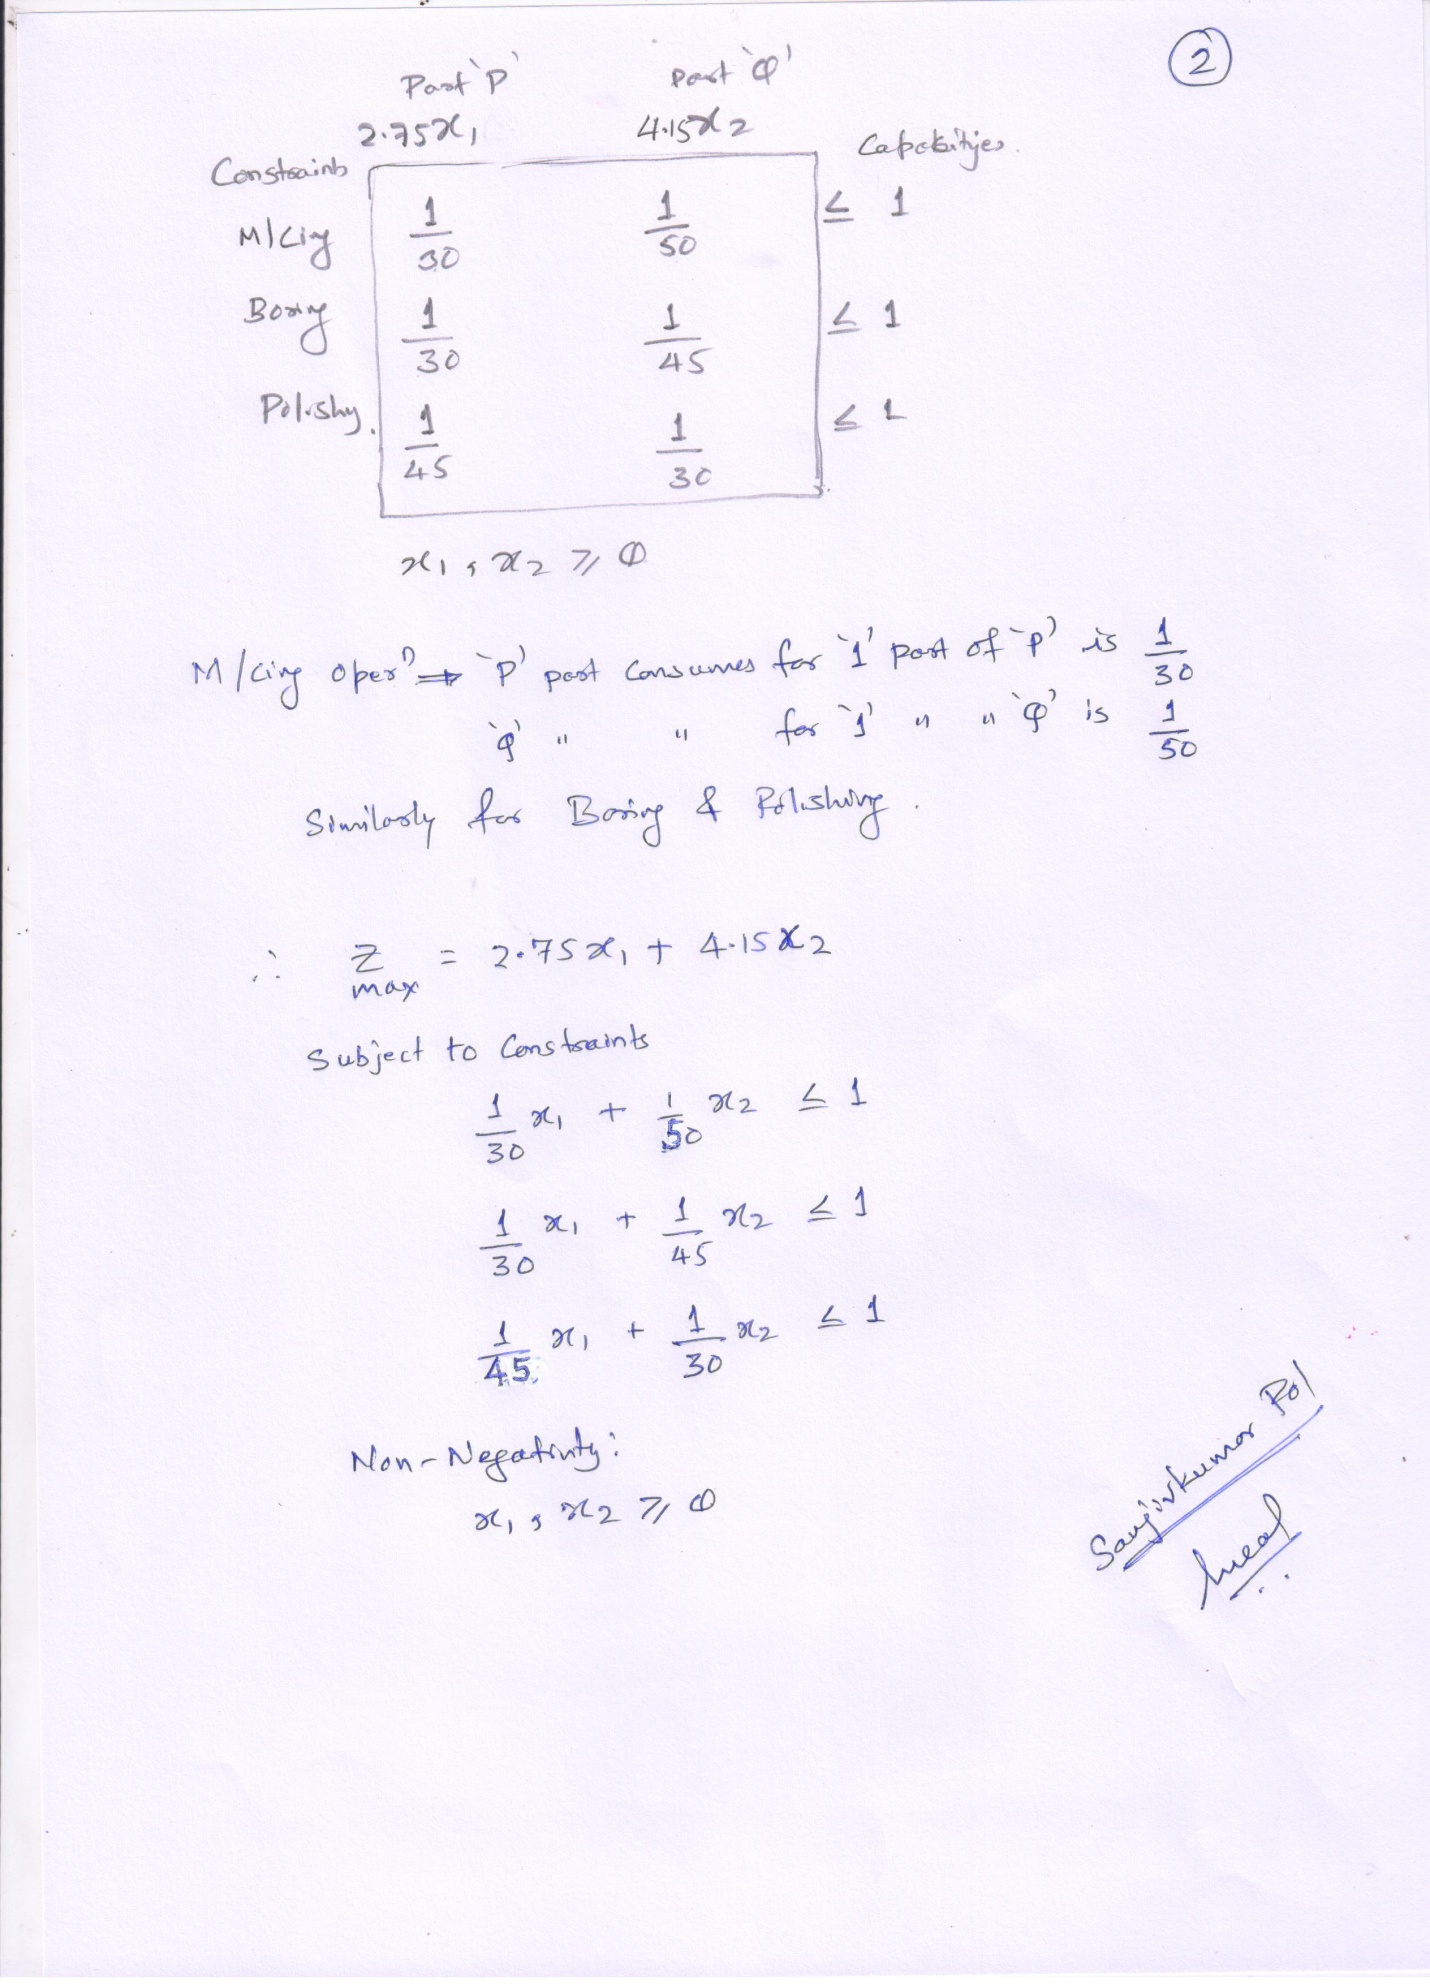 2
Part `P' Part `Q'
2.75x₁ 4.15x₂
Constraints Capabilities.
M/cing 1/30 1/50 ≤ 1
Boring 1/30 1/45 ≤ 1
Polishing 1/45 1/30 ≤ 1
x₁, x₂ ≥ 0
M/cing operⁿ ⇒ `P' part consumes for `1' part of `P' is 1/30
`Q' " " for `1' " " `Q' is 1/50
Similarly for Boring & Polishing.
∴ Z max = 2.75x₁ + 4.15x₂
Subject to Constraints
1/30 x₁ + 1/50 x₂ ≤ 1
1/30 x₁ + 1/45 x₂ ≤ 1
1/45 x₁ + 1/30 x₂ ≤ 1
Non-Negativity:
x₁, x₂ ≥ 0
Sanjivkumar Pol